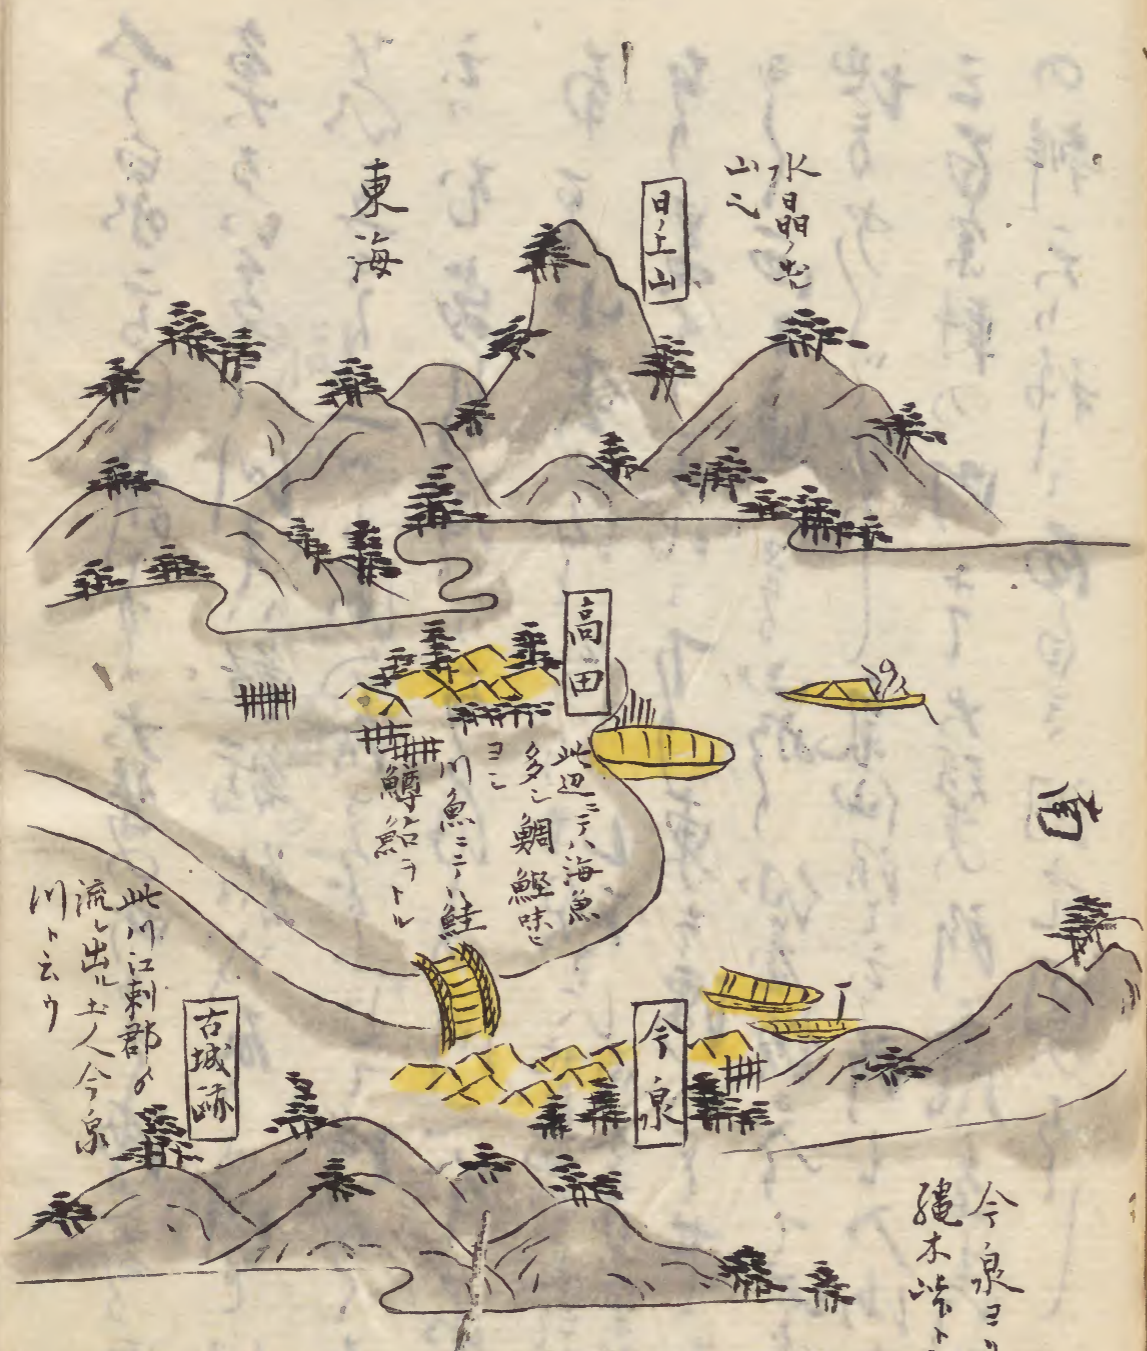 水晶ノ出
山也
日ノ上山
東海
高田
此辺ニテハ海魚
多シ鯛鰹味ヒ
ヨシ
川魚ニテハ鮭
鱒鮎ヲトル
南
今泉
古城跡
此川江刺郡ゟ
流レ出ル土人今泉
川ト云ウ
今泉ヨリ